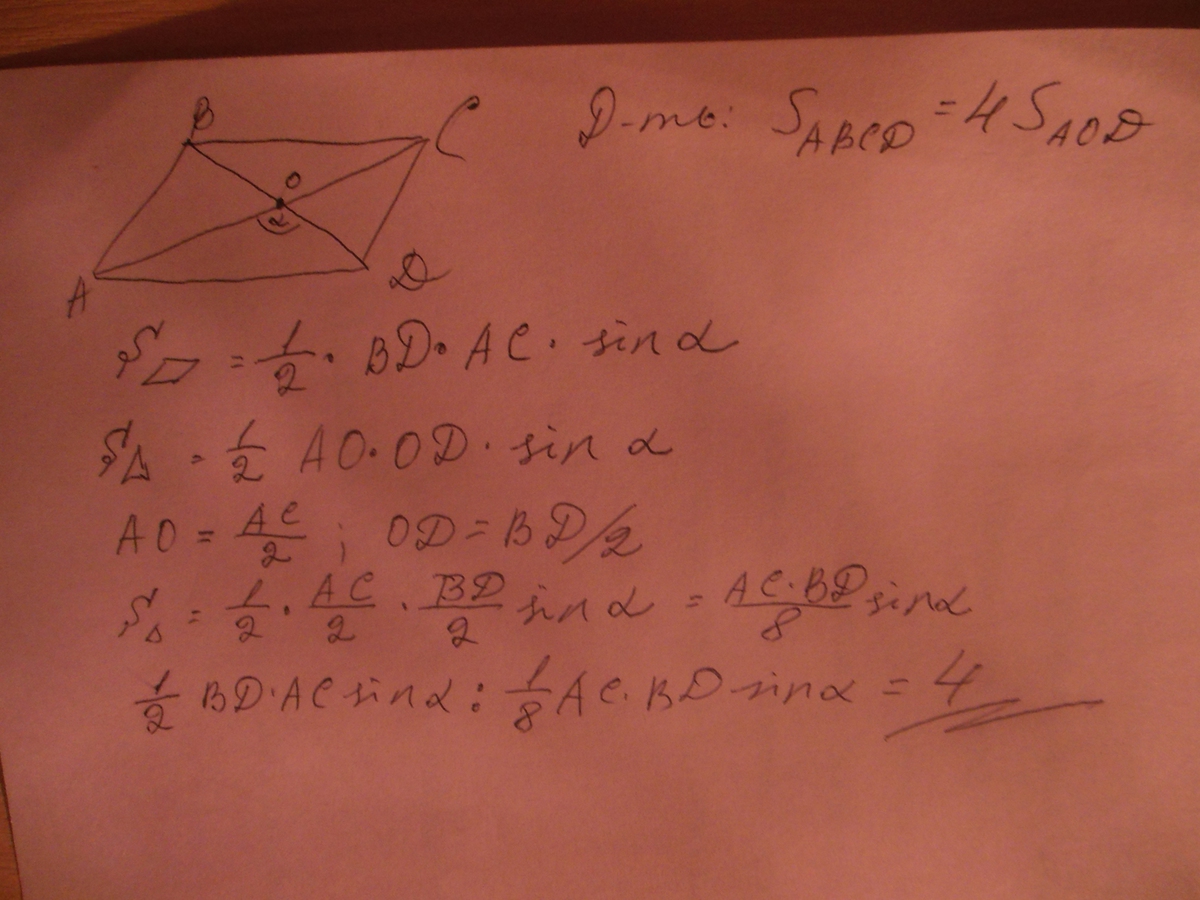 B
C
O
α
A
D
Д-ть: S_ABCD = 4 S_AOD
S▱ = 1/2 · BD · AC · sin α
S△ = 1/2 AO · OD · sin α
AO = AC/2 ; OD = BD/2
S△ = 1/2 · AC/2 · BD/2 sin α = AC·BD/8 sin α
1/2 BD·AC sin α : 1/8 AC·BD sin α = 4